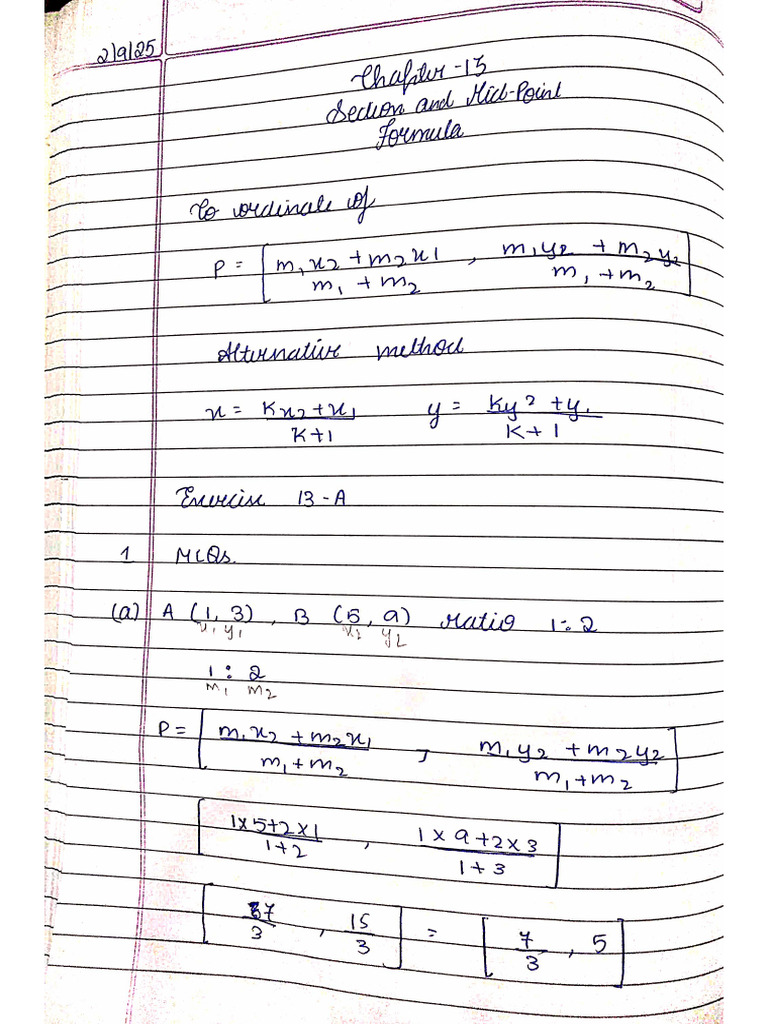 2/9/25
Chapter-13
Section and Mid-Point
Formula
Co ordinate of
P = [m₁x₂ + m₂x1 / m₁ + m₂ , m₁y2 + m₂y₂ / m₁ + m₂]
Alternative method
x = Kx₂ + x₁ / K+1 y = Ky² + y₁ / K+1
Exercise 13-A
1 MCQs.
(a) A (1, 3) , B (5, 9) ratio 1:2
x₁ y₁ x₂ y₂
1 : 2
m₁ m₂
P = [m₁x₂ + m₂x₁ / m₁ + m₂ , m₁y₂ + m₂y₂ / m₁ + m₂]
[1×5+2×1 / 1+2 , 1×9+2×3 / 1+3]
[7/3 , 15/3] = [7/3 , 5]